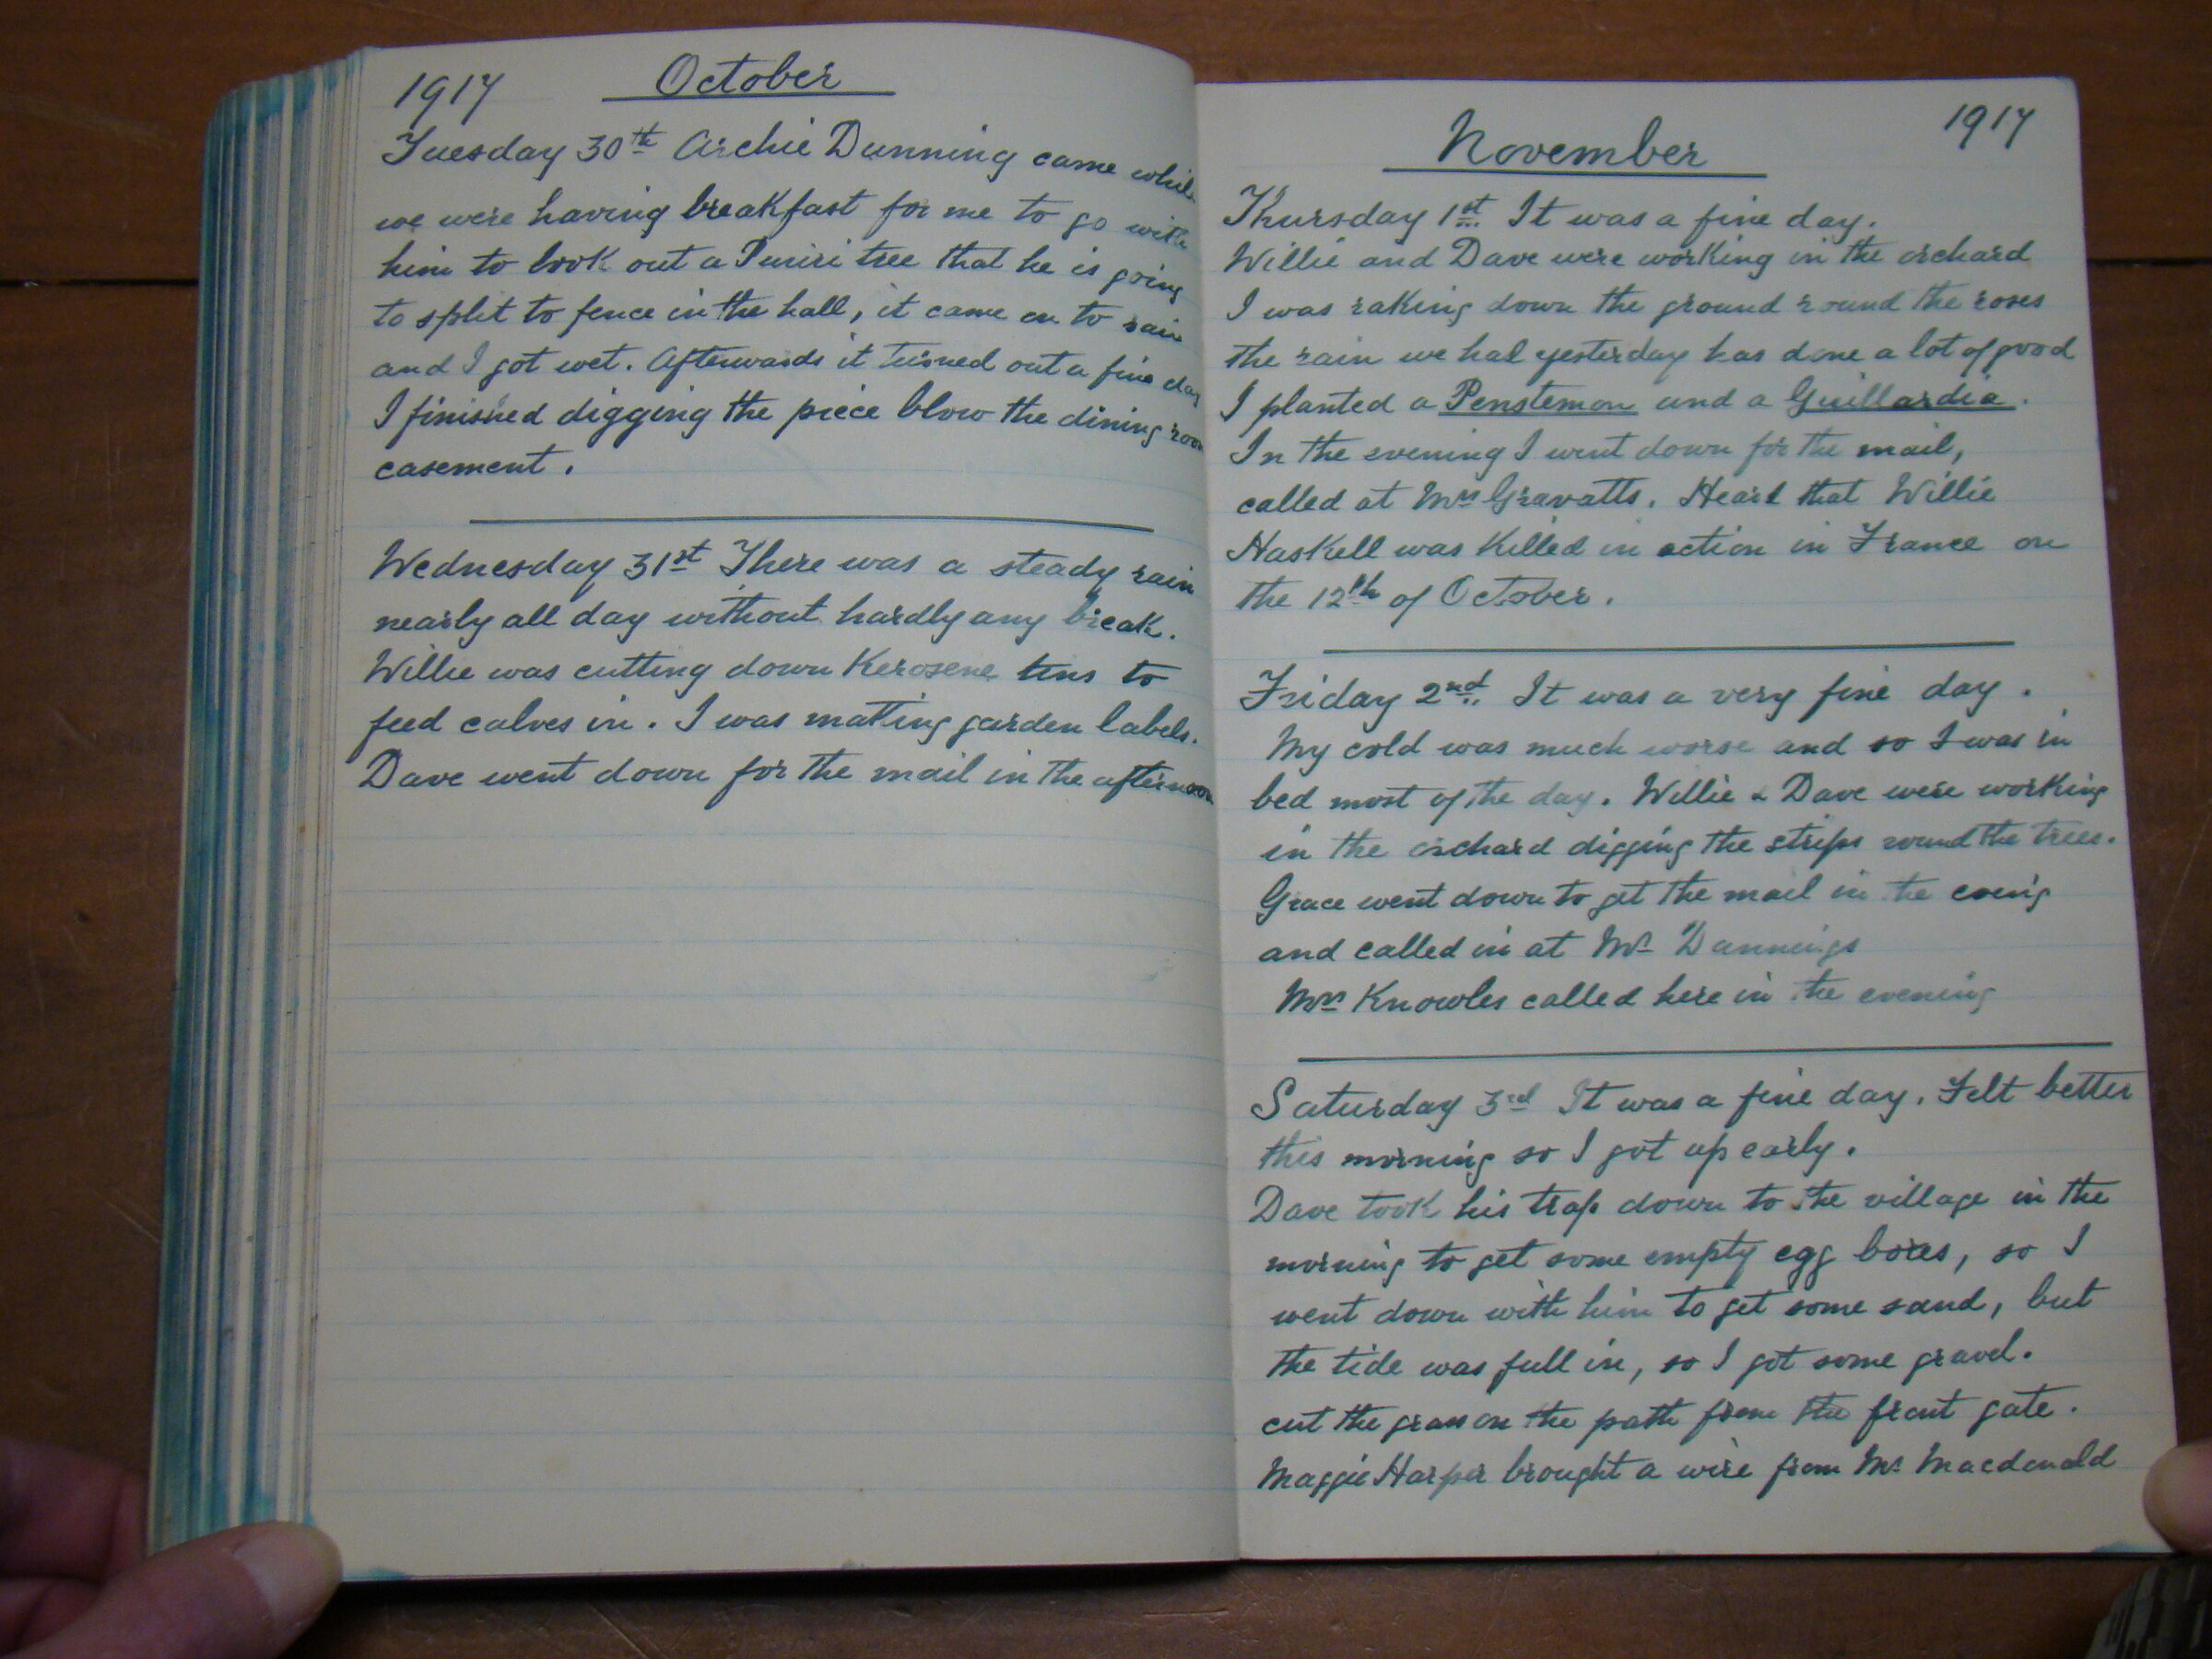 1917 October
Tuesday 30th Archie Dunning came while
we were having breakfast for me to go with
him to look out a Puriri tree that he is going
to split to fence in the hall, it came on to rain
and I got wet. Afterwards it turned out a fine day
I finished digging the piece blow the dining room
casement.
Wednesday 31st There was a steady rain
nearly all day without hardly any break.
Willie was cutting down Kerosene tins to
feed calves in. I was making garden labels.
Dave went down for the mail in the afternoon
November 1917
Thursday 1st It was a fine day.
Willie and Dave were working in the orchard
I was raking down the ground round the roses
the rain we had yesterday has done a lot of good
I planted a Penstemon and a Guillardia.
In the evening I went down for the mail,
called at Mrs Gravatts. Heard that Willie
Haskell was killed in action in France on
the 12th of October.
Friday 2nd It was a very fine day.
My cold was much worse and so I was in
bed most of the day. Willie & Dave were working
in the orchard digging the strips round the trees.
Grace went down to get the mail in the eveing
and called in at Mr Dunnings
Mrs Knowles called here in the evening
Saturday 3rd It was a fine day. Felt better
this morning so I got up early.
Dave took his trap down to the village in the
morning to get some empty egg boxes, so I
went down with him to get some sand, but
the tide was full in, so I got some gravel.
cut the grass on the path from the front gate.
Maggie Harper brought a wire from Mr Macdonald